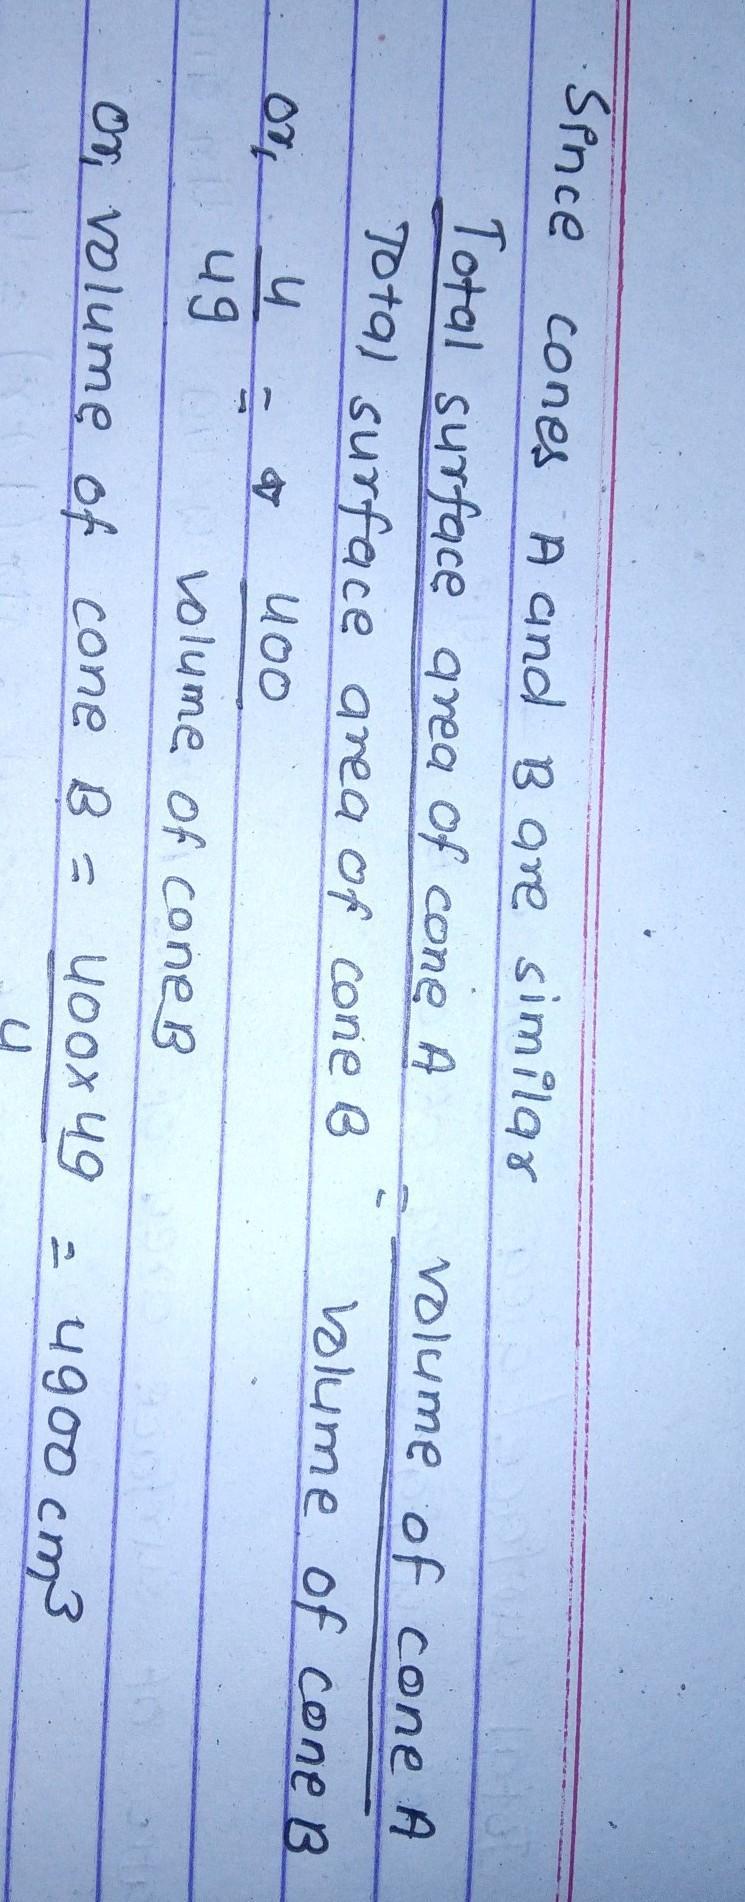 Since cones A and B are similar
Total surface area of cone A / Total surface area of cone B = volume of cone A / volume of cone B
or, 4/49 = 400 / volume of cone B
or, volume of cone B = 400×49 / 4 = 4900 cm³